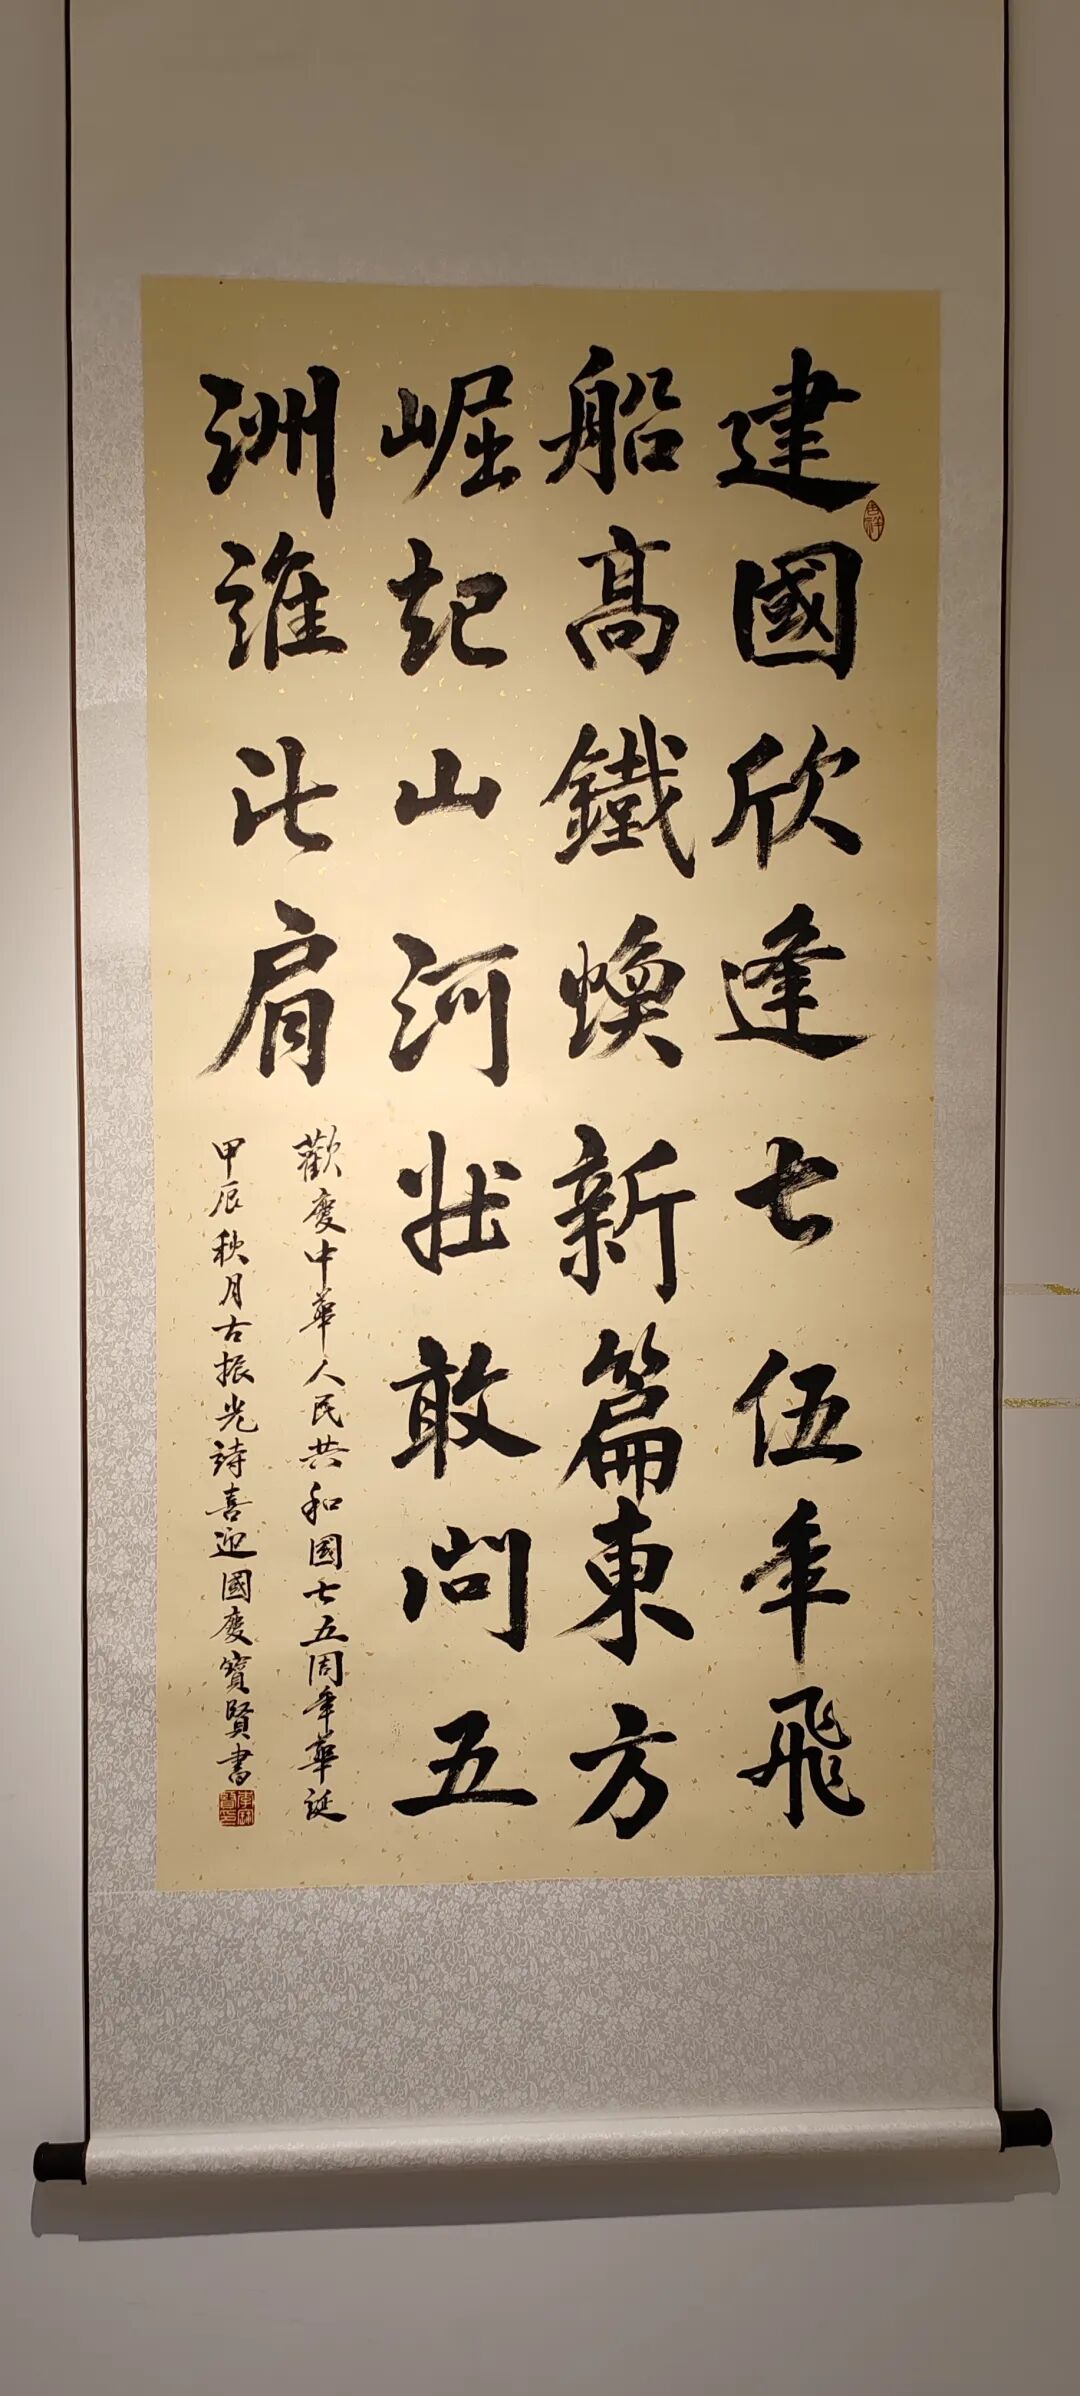 建國欣逢七伍年飛
船高鐵煥新篇東方
崛起山河壯敢問五
洲誰比肩
歡慶中華人民共和國七五周年華誕
甲辰秋月古振光詩喜迎國慶寶賢書